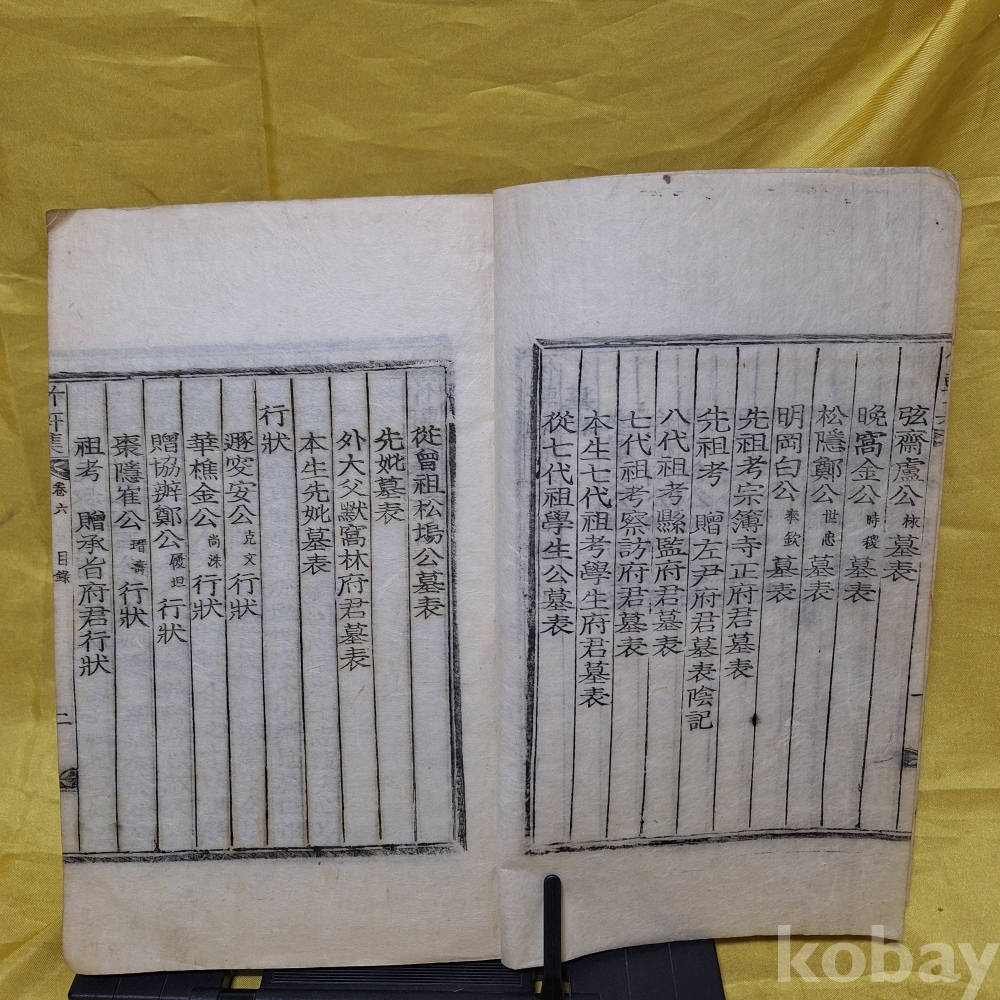 弦齋盧公㭽墓表
晩窩金公時稷墓表
松隱鄭公世忠墓表
明岡白公奉欽墓表
先祖考宗簿寺正府君墓表
先祖考 贈左尹府君墓表陰記
八代祖考縣監府君墓表
七代祖考察訪府君墓表
本生七代祖考學生府君墓表
從七代祖學生公墓表
從曾祖松塲公墓表
先妣墓表
外大父默窩林府君墓表
本生先妣墓表
行狀
遯安公克文行狀
華樵金公尚洙行狀
贈協辦鄭公履坦行狀
棗隱崔公瑨壽行狀
祖考 贈承旨府君行狀
集 卷六 目錄 二
kobay